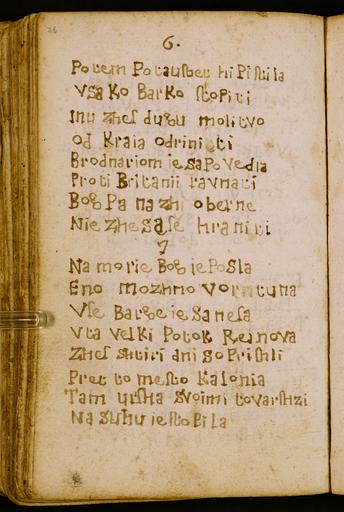 26
6.
Potem Potaustvet hi Pistila
vsako Barko stopiti
Inu zhes dugu molitvo
od Kraia odriniti
Brodnariom ie saPovedla
Proti Britanii ravnati
Bog Pa na zhi oberne
Nie zhe sa se hraniti
7
Na morie Bog ie Posla
Eno mozhno vorntuna
Vse Barbe ie sanesa
Vta velki Potok Reinova
Zhes shtiri dni so Prishli
Pret to mesto Kalonia
Tam ursha svoimi tovarshzi
Na suhu ie stoPila